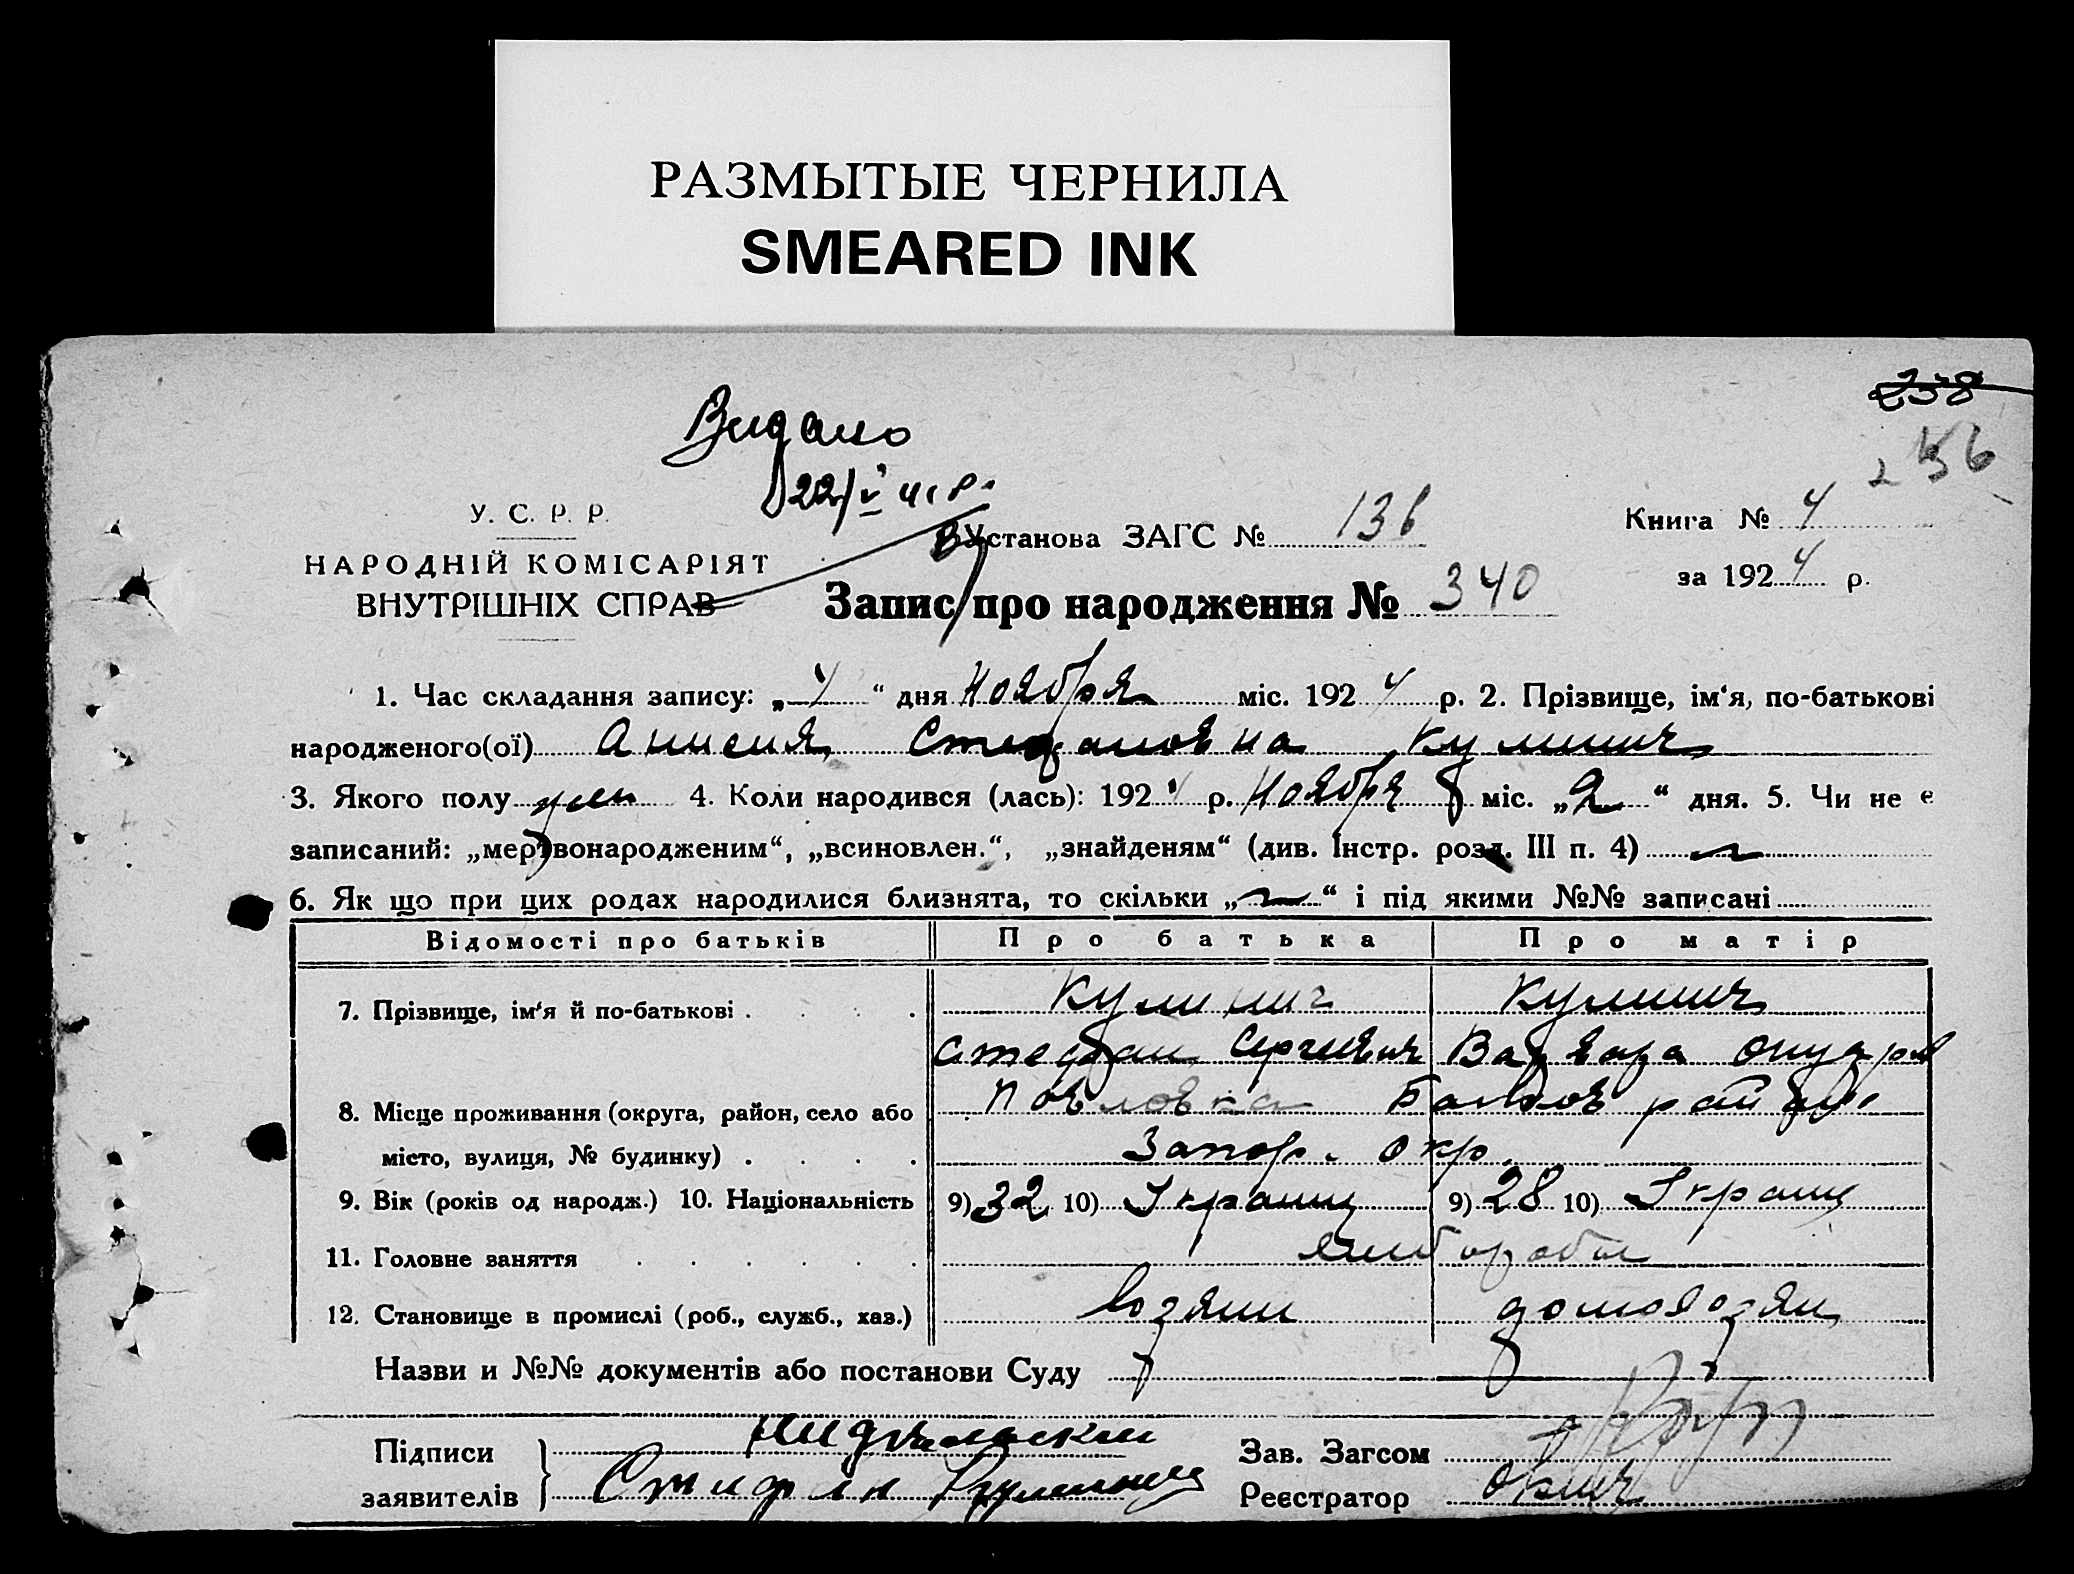 РАЗМЫТЫЕ ЧЕРНИЛА
SMEARED INK
238
256
Видано
22/V 41 р.
У. С. Р. Р.
НАРОДНІЙ КОМІСАРІЯТ
ВНУТРІШНІХ СПРАВ
Установа ЗАГС № 136
Книга № 4
за 1924 р.
Запис про народження № 340
1. Час складання запису: „4“ дня Ноября міс. 1924 р. 2. Прізвище, ім'я, по-батькові
народженого(ої) Анисия Стефановна Кулинич
3. Якого полу жен 4. Коли народився (лась): 1924 р. Ноября міс. „2“ дня. 5. Чи не є
записаний: „мертвонародженим“, „всиновлен.“, „знайденям“ (див. Інстр. розд. III п. 4)
6. Як що при цих родах народилися близнята, то скільки „ “ і під якими №№ записані
Відомості про батьків Про батька Про матір
7. Прізвище, ім'я й по-батькові Кулинич Кулинич
Стефан Сергиевич Варвара
8. Місце проживання (округа, район, село або Павловка
місто, вулиця, № будинку) Запор. окр.
9. Вік (років од народж.) 10. Національність 9) 32 10) Украинц 9) 28 10) Украинц
11. Головне заняття
12. Становище в промислі (роб., служб., хаз.) хозяин домохозяй
Назви и №№ документів або постанови Суду
Підписи Зав. Загсом
заявителів Стифан Кулинич Реєстратор